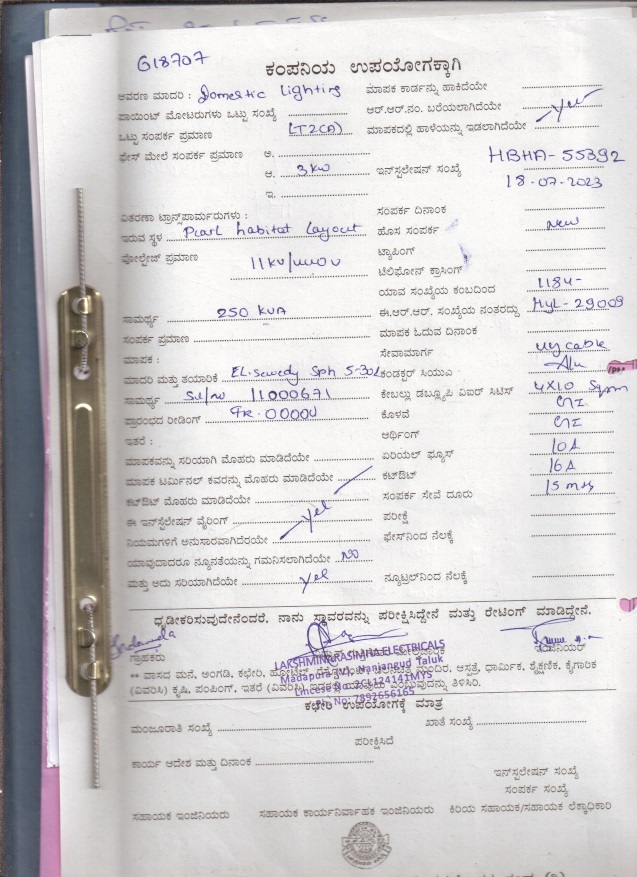 G18707
ಕಂಪನಿಯ ಉಪಯೋಗಕ್ಕಾಗಿ
ಆವರಣ ಮಾದರಿ : Domestic Lighting ಮಾಪಕ ಕಾರ್ಡನ್ನು ಹಾಕಿದೆಯೇ
ಪಾಯಿಂಟ್ ಮೋಟರುಗಳು ಒಟ್ಟು ಸಂಖ್ಯೆ ಆರ್.ಆರ್.ನಂ. ಬರೆಯಲಾಗಿದೆಯೇ yes
ಒಟ್ಟು ಸಂಪರ್ಕ ಪ್ರಮಾಣ LT2(A) ಮಾಪಕದಲ್ಲಿ ಹಾಳೆಯನ್ನು ಇಡಲಾಗಿದೆಯೇ
ಫೇಸ್ ಮೇಲೆ ಸಂಪರ್ಕ ಪ್ರಮಾಣ ಅ.
ಆ. 3kw ಇನ್‌ಸ್ಟಲೇಷನ್ ಸಂಖ್ಯೆ HBHA-55392
ಇ. 18-07-2023
ವಿತರಣಾ ಟ್ರಾನ್ಸ್‌ಫಾರ್ಮರುಗಳು : ಸಂಪರ್ಕ ದಿನಾಂಕ
ಇರುವ ಸ್ಥಳ Pearl habitat Layout ಹೊಸ ಸಂಪರ್ಕ New
ವೋಲ್ಟೇಜ್ ಪ್ರಮಾಣ ಟ್ಯಾಪಿಂಗ್
11kv/ ಟೆಲಿಫೋನ್ ಕ್ರಾಸಿಂಗ್
ಯಾವ ಸಂಖ್ಯೆಯ ಕಂಬದಿಂದ 1184-
ಸಾಮರ್ಥ್ಯ 250 KVA ಈ.ಆರ್.ಆರ್. ಸಂಖ್ಯೆಯ ನಂತರದ್ದು HyL-29009
ಸಂಪರ್ಕ ಪ್ರಮಾಣ ಮಾಪಕ ಓದುವ ದಿನಾಂಕ
ಮಾಪಕ : ಸೇವಾಮಾರ್ಗ UG cable
ಮಾದರಿ ಮತ್ತು ತಯಾರಿಕೆ EL-Sewedy Sph 5-30A ಕಂಡಕ್ಟರ್ ಸಿಯುಎ Alu
ಸಾಮರ್ಥ್ಯ Sl/no 11000671 ಕೇಬಲ್ಲು ಡಬ್ಲ್ಯೂಪಿ ವಿಐರ್ ಸಿಟಿಸ್ 4X10 Sqmm
ಪ್ರಾರಂಭದ ರೀಡಿಂಗ್ FR-00000 ಕೊಳವೆ GI
ಇತರೆ : ಅರ್ಥಿಂಗ್ GI
ಮಾಪಕವನ್ನು ಸರಿಯಾಗಿ ಮೊಹರು ಮಾಡಿದೆಯೇ ಏರಿಯಲ್ ಫ್ಯೂಸ್ 10A
ಮಾಪಕ ಟರ್ಮಿನಲ್ ಕವರನ್ನು ಮೊಹರು ಮಾಡಿದೆಯೇ ಕಟ್‌ಔಟ್ 16A
ಕಟ್‌ಔಟ್ ಮೊಹರು ಮಾಡಿದೆಯೇ ಸಂಪರ್ಕ ಸೇವೆ ದೂರು 15 mts
ಈ ಇನ್‌ಸ್ಟಲೇಷನ್ ವೈರಿಂಗ್ yes ಪರೀಕ್ಷೆ
ನಿಯಮಗಳಿಗೆ ಅನುಸಾರವಾಗಿದೆಯೇ ಫೇಸ್‌ನಿಂದ ನೆಲಕ್ಕೆ
ಯಾವುದಾದರೂ ನ್ಯೂನತೆಯನ್ನು ಗಮನಿಸಲಾಗಿದೆಯೇ No
ಮತ್ತು ಅದು ಸರಿಯಾಗಿದೆಯೇ yes ನ್ಯೂಟ್ರಲ್‌ನಿಂದ ನೆಲಕ್ಕೆ
ಧೃಡೀಕರಿಸುವುದೇನೆಂದರೆ, ನಾನು ಸ್ಥಾವರವನ್ನು ಪರೀಕ್ಷಿಸಿದ್ದೇನೆ ಮತ್ತು ರೇಟಿಂಗ್ ಮಾಡಿದ್ದೇನೆ.
ಗ್ರಾಹಕರು
LAKSHMINARASIMHA ELECTRICALS
Madapura (V), Nanjangud Taluk
Lincese No: 2CL124141MYS
Ph No: 7892656165
** ವಾಸದ ಮನೆ, ಅಂಗಡಿ, ಕಛೇರಿ, ಮಂದಿರ, ಆಸ್ಪತ್ರೆ, ಧಾರ್ಮಿಕ, ಶೈಕ್ಷಣಿಕ, ಕೈಗಾರಿಕೆ
(ವಿವರಿಸಿ) ಕೃಷಿ, ಪಂಪಿಂಗ್, ಇತರೆ (ವಿವರಿಸಿ) ಎಂಬುವುದನ್ನು ತಿಳಿಸಿರಿ.
ಕಛೇರಿ ಉಪಯೋಗಕ್ಕೆ ಮಾತ್ರ
ಮಂಜೂರಾತಿ ಸಂಖ್ಯೆ ಖಾತೆ ಸಂಖ್ಯೆ
ಪರೀಕ್ಷಿಸಿದೆ
ಕಾರ್ಯ ಆದೇಶ ಮತ್ತು ದಿನಾಂಕ
ಇನ್‌ಸ್ಟಲೇಷನ್ ಸಂಖ್ಯೆ
ಸಂಪರ್ಕ ಸಂಖ್ಯೆ
ಸಹಾಯಕ ಇಂಜಿನಿಯರು ಸಹಾಯಕ ಕಾರ್ಯನಿರ್ವಾಹಕ ಇಂಜಿನಿಯರು ಕಿರಿಯ ಸಹಾಯಕ/ಸಹಾಯಕ ಲೆಕ್ಕಾಧಿಕಾರಿ